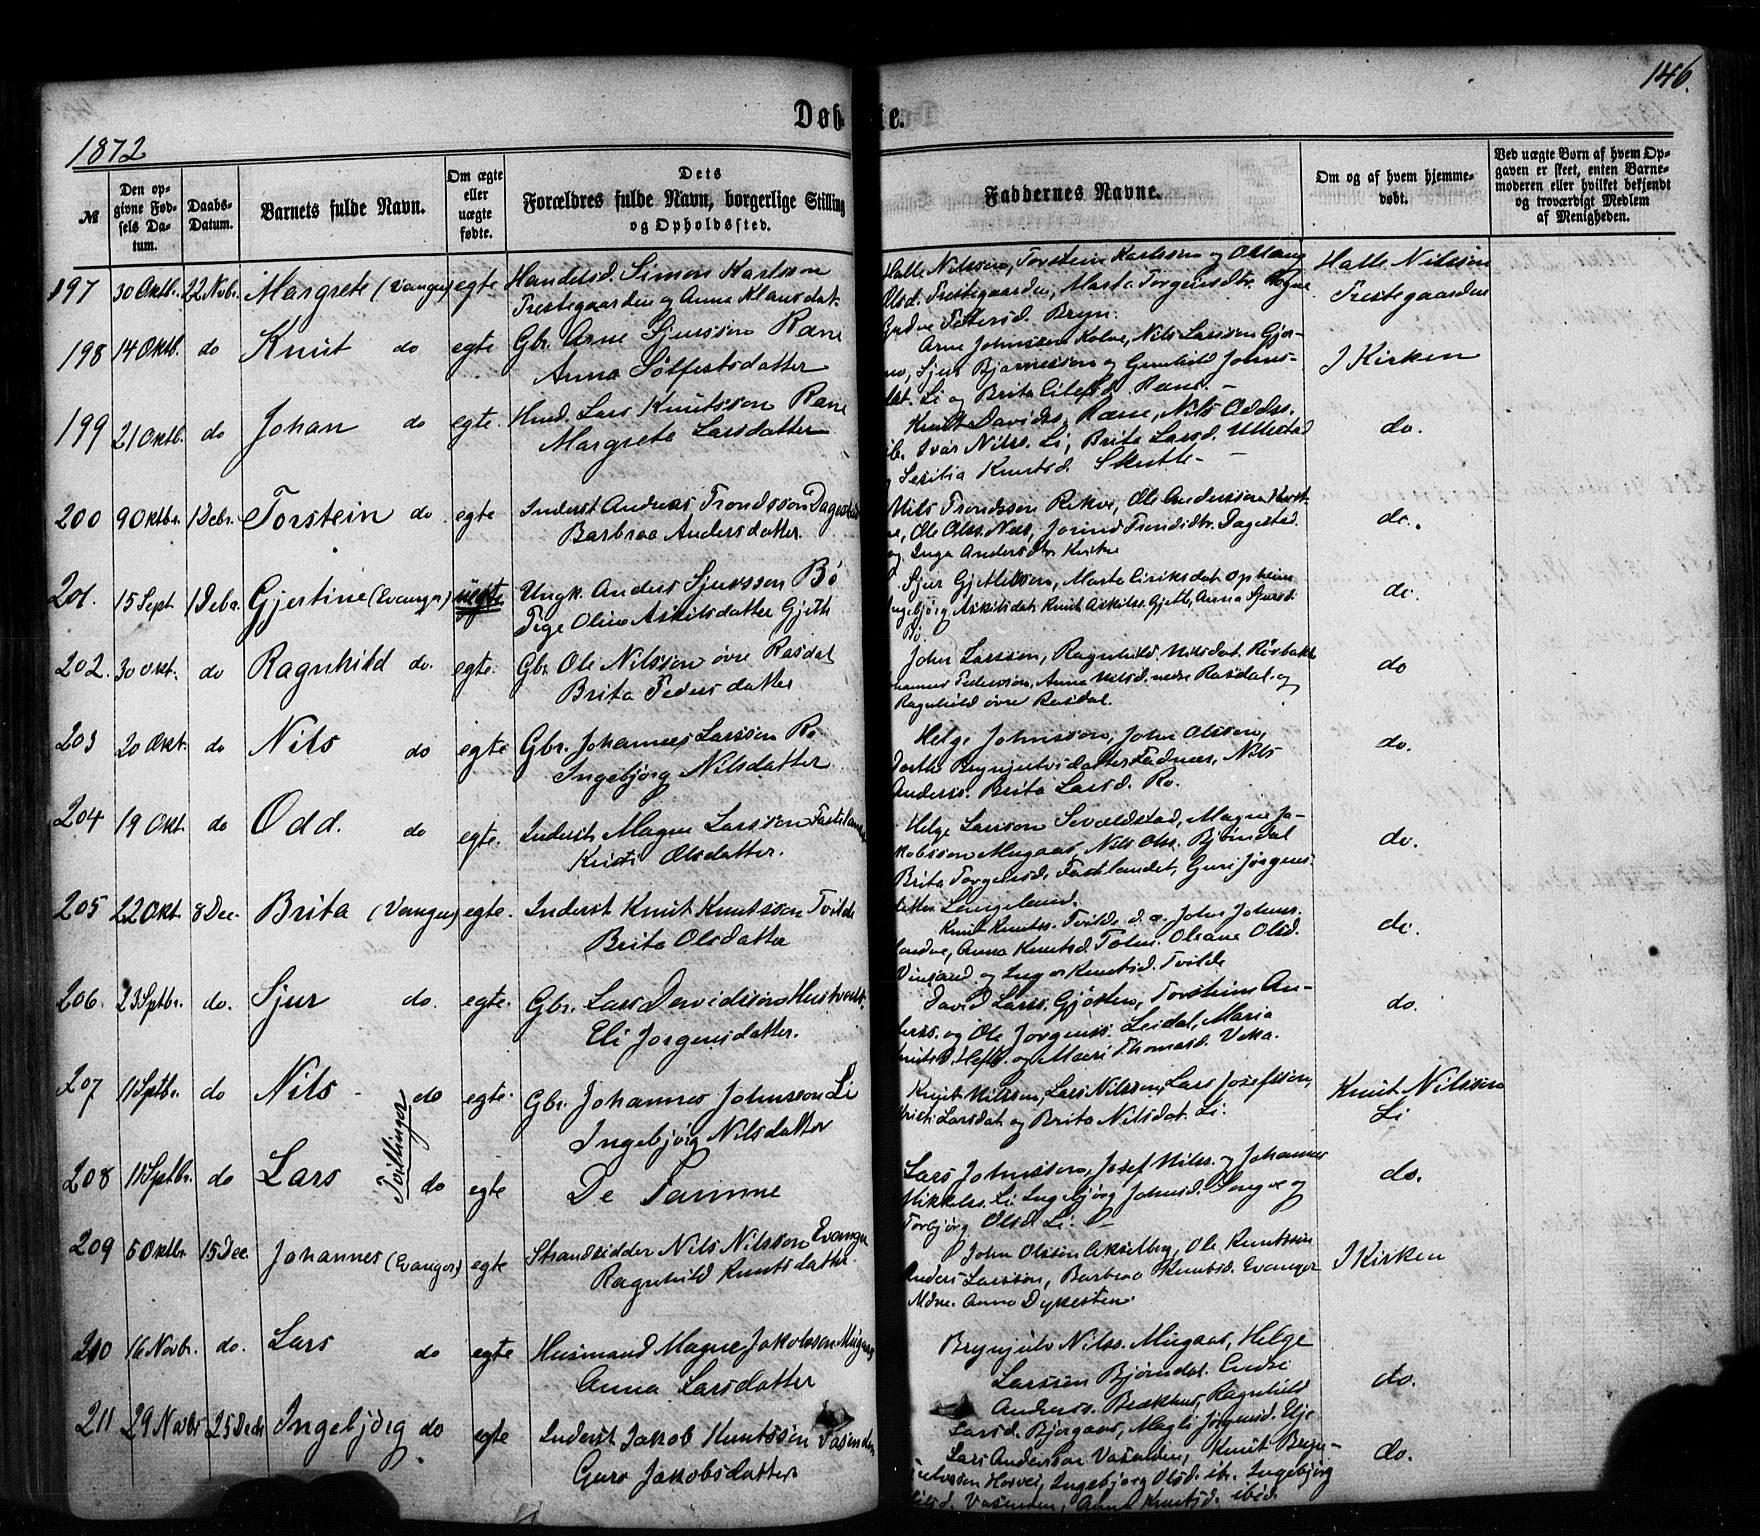 146.
Døbte.
1872
№
Den opgivne Fødsels Datum.
Daabs-Datum.
Barnets fulde Navn.
Om ægte eller uægte fødte.
Dets Forældres fulde Navn, borgerlige Stilling og Opholdssted.
Faddernes Navne.
Om og af hvem hjemmedøbt.
Ved uægte Børn af hvem Opgaven er skeet, enten Barnemoderen eller hvilket bekjendt og troværdigt Medlem af Menigheden.
197 30 Oktb. 22 Novbr. Margrete (Vanger) egte Handelsd. Simon Karlsson
Prestegaarden og Anna Klausdat.
Halle Nilsson, Torstein Karlsson og
Olsd. Prestegaarden, Marta Torgersdtr.
Pedersd. Bryn.
Halle Nilsson
Prestegaarden
198 14 Oktb. do Knut do egte Gbr. Arne Sjursson Rene
Anna Sølfestsdatter
Arne Johnsson Kolve, Nils Larsson Gjer-
no, Sjur Bjarnesson og Gunhild Johns-
dat. Li og Brita Eilefsd. Rene. -
I Kirken
199 21 Oktb. do Johan do egte. Hmd. Lars Knutsson Rene
Margreta Larsdatter
Knut Davids. Rene, Nils Odds.
ib. Ivar Nilss. Li, Brita Larsd. Ullestad
og Sesilia Knutsd. Skutle -
do.
200 9 Oktbr. 1 Debr. Torstein do. egte Inderst Andreas Trondsson Dagestad
Barbraa Andersdatter.
Nils Trondsson Rekve, Ole Andersson
Ole Olss. Nes, Jorind Trondsdtr. Dagestad
og Inga Andersdtr.
do.
201. 15 Sept 1 Debr. Gjertine (Evanger) uegte Ungk. Anders Sjursson Bø
Pige Olina Askilsdatter Gjetle
Sjur Gjetleson, Marta Eiriksdat. Opheim
Ingebjørg Askilsdat. Knut Askilss. Gjetle, Anna Sjursd.
Bø.
do.
202. 30 Okt. do Ragnhild do. egte. Gbr. Ole Nilsson øvre Rasdal
Brita Pedersdatter
John Larsson, Ragnhild Nilsdat. Rørbakk
Johannes Pedersson, Anna Nilsd. nedre Rasdal og
Ragnhild øvre Rasdal.
do
203 20 Okt. do Nils do egte Gbr. Johannes Larsson Ro
Ingebjørg Nilsdatter
Helge Johnsson, John Olsson,
Dorthe Brynjulvsdatter Fadnes, Nils
Anderss. Brita Larsd. Ro.
do.
204 19 Okt. do Odd. do egte. Inderst Magne Larsson Fastlandet
Kristi Olsdatter.
Helge Larsson Sevaldstad, Magne Ja-
kobsson Mugaas, Nils Olss. Bjørndal
Brita Torgersd. Fastlandet, Guri Jørgens-
datter Lengeland.
do.
205 22 Okt. 8 Dec. Brita (Vanger) egte. Inderst Knut Knutsson Tvilde
Brita Olsdatter
Knut Knutss. Tvilde d. æ. John Johns.
Anna Knutsd. Oleane Olsd.
Vinsand og Inger Knutsd. Tvilde
do.
206. 23 Sptbr. do. Sjur do. egte. Gbr. Lars Davidsson
Eli Jorgensdatter.
David Larss. Gjøstein, Torstein An-
derss. og Ole Jørgenss. Leidal, Maria
Knutsd. og Mari Thomasd. Veka.
do.
207 11 Sptbr. do Nils - do egte. Gbr. Johannes Johnsson Li
Ingebjørg Nilsdatter
Tvillinger
Knut Nilsson, Lars Nilsson, Lars Josefsson,
Kristi Larsdat. og Brita Nilsdat. Li.
Knut Nilsson
Li
208 11 Sptbr. do Lars do egte De Samme
Lars Johnsson, Josef Nilss. og Johannes
Mikkelss. Li Ingebjørg Johnsd. og
Torbjørg Olsd. Li. -
do.
209 5 Oktbr. 15 Dec. Johannes (Evanger) egte Strandsidder Nils Nilsson Evanger
Ragnhild Knutsdatter.
John Olsson Akselberg, Ole Knutsson
Anders Larsson, Barbraa Knutsd. Evanger
Mdne. Anna Dykesten.
I Kirken
210 16 Novbr. do. Lars do egte Husmand Magne Jakobsson Mugaas
Anna Larsdatter
Brynjulv Nilss. Mugaas, Helge
Larsson Bjørndal. Endre
Anderss. Bækhus, Ragnhild
Larsd. Bjørgaas, Magli Jørgensd.
do.
211 29 Novbr 25 Decbr Ingebjørg do egte Inderst Jakob Knutsson Vasenden
Guro Jakobsdatter
Lars Andersson Vasenden, Knut Bryn-
julvsson Horvei, Ingebjørg Olsd. ib. Ingebjørg
Vasenden, Anna Knutsd. ibid.
do.